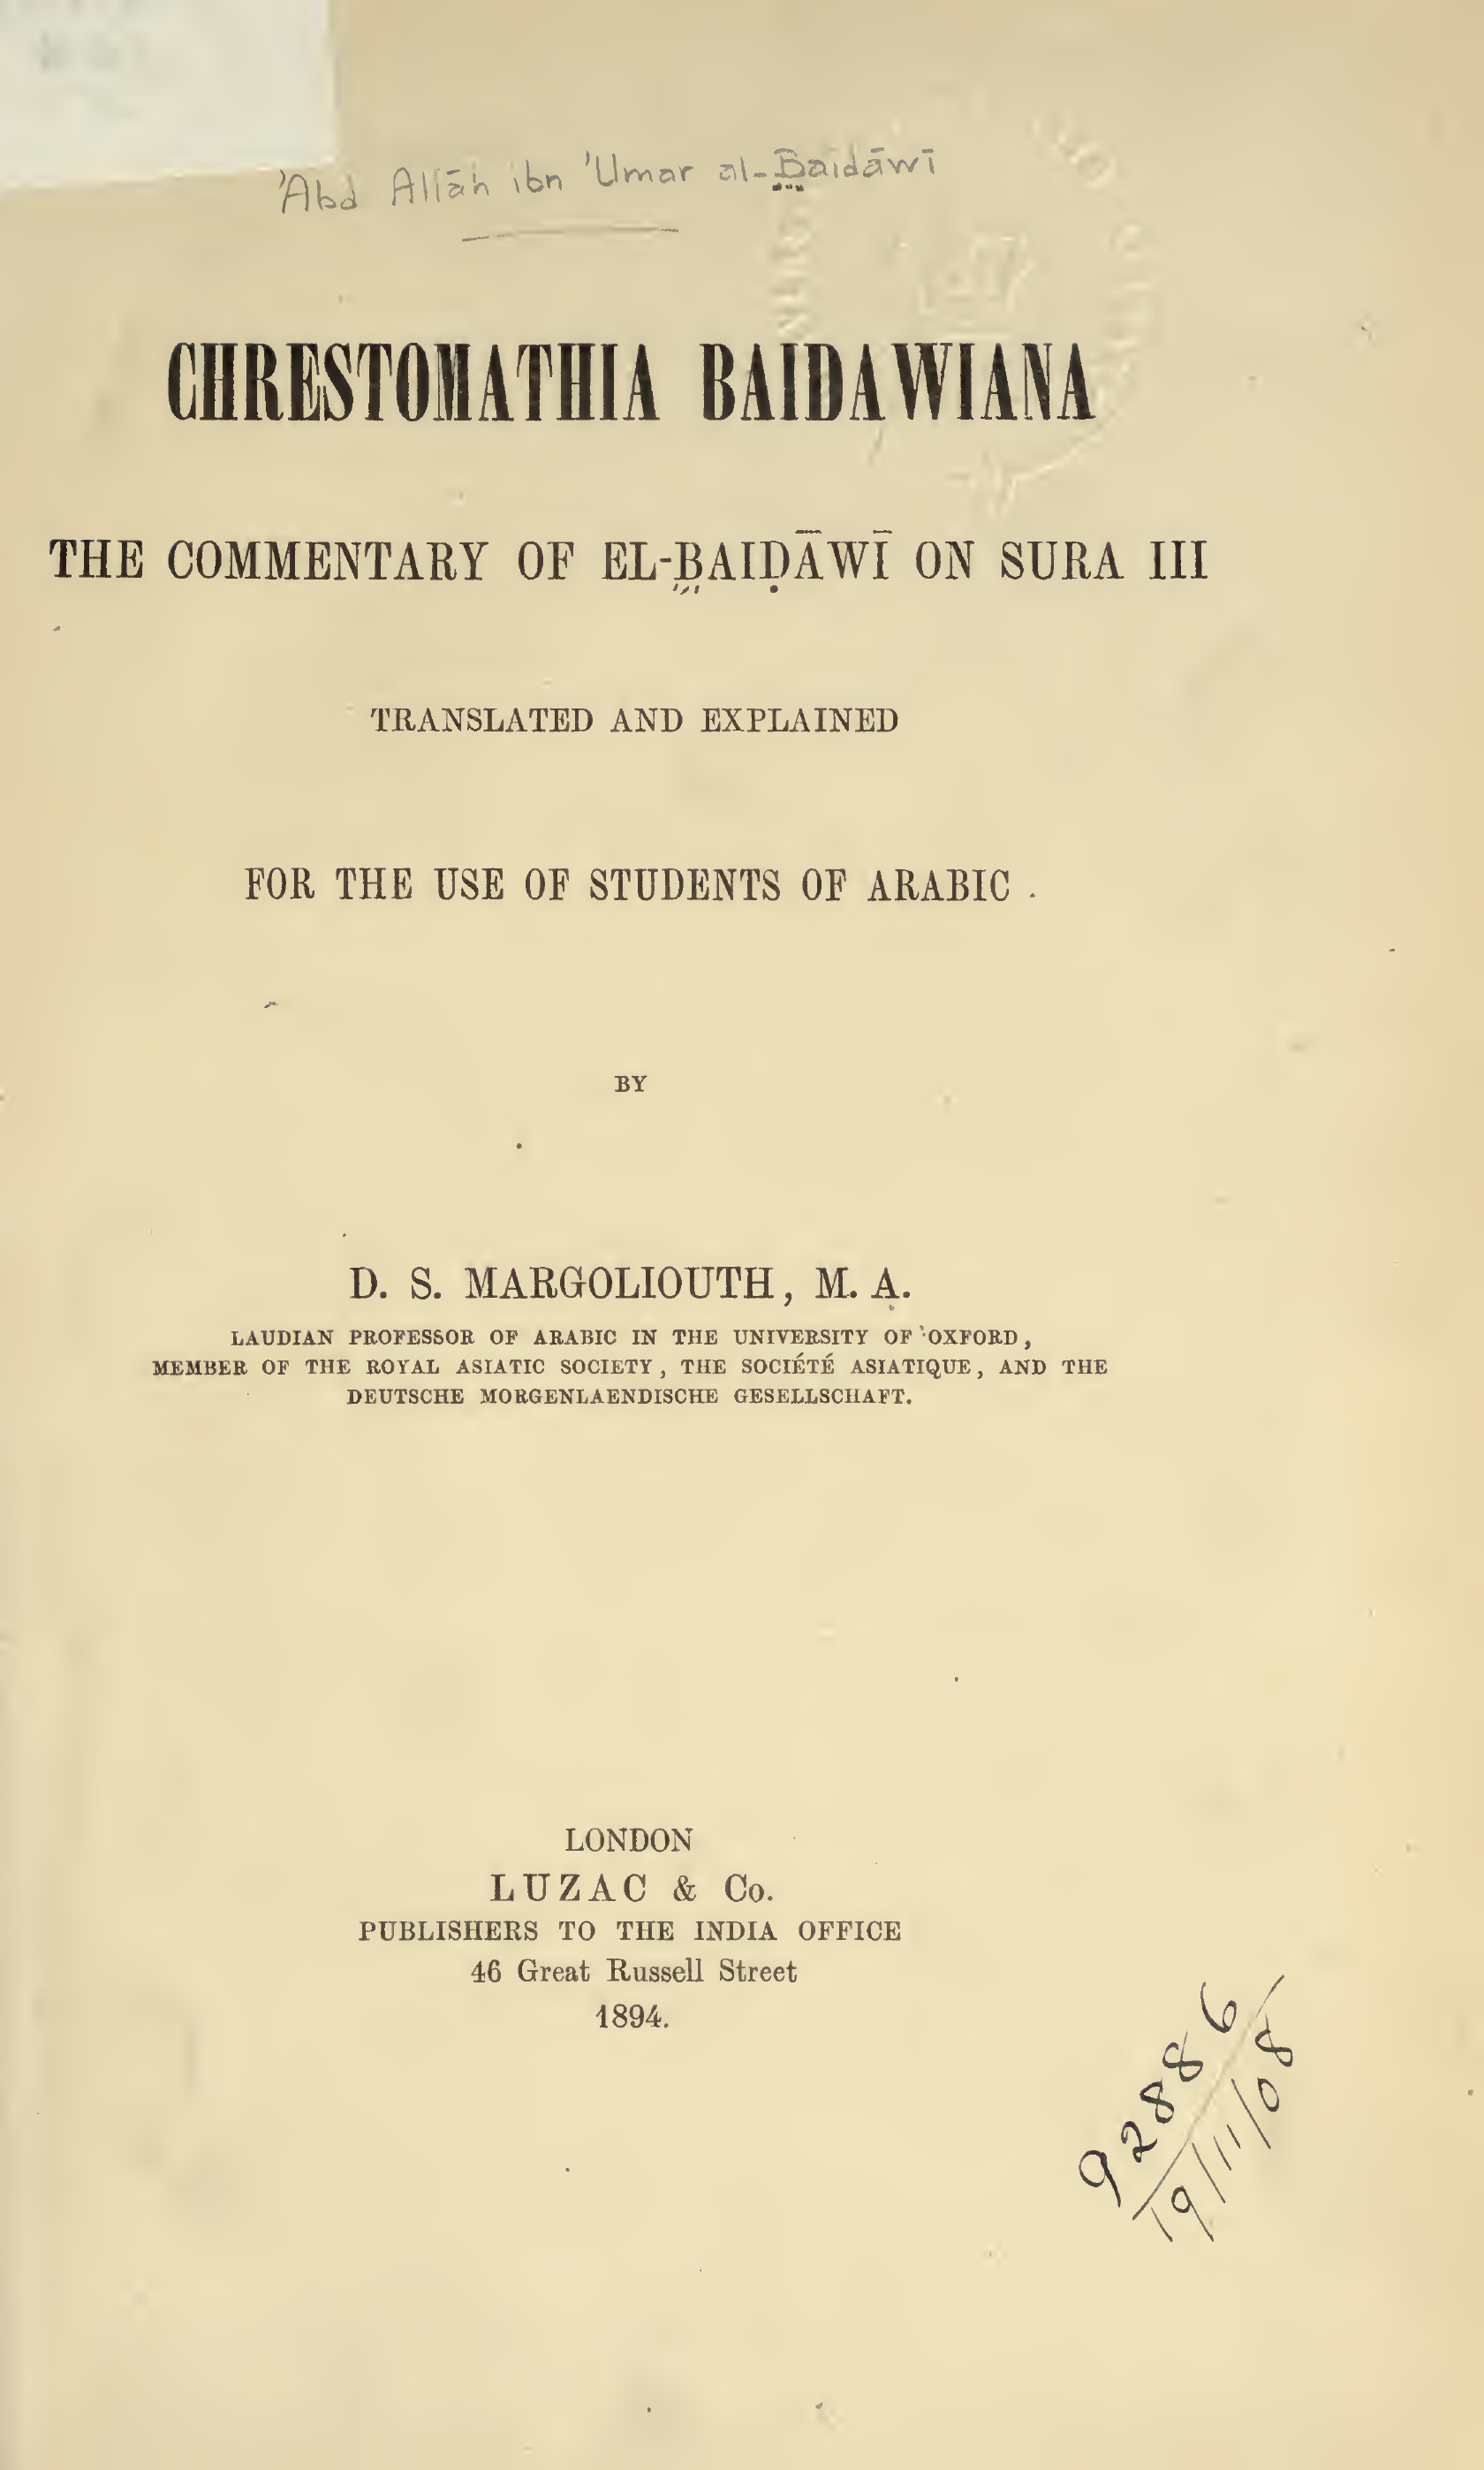 'Abd Allāh ibn 'Umar al-Baidāwī
CHRESTOMATHIA BAIDAWIANA
THE COMMENTARY OF EL-BAIḌĀWĪ ON SURA III
TRANSLATED AND EXPLAINED
FOR THE USE OF STUDENTS OF ARABIC
BY
D. S. MARGOLIOUTH, M. A.
LAUDIAN PROFESSOR OF ARABIC IN THE UNIVERSITY OF OXFORD,
MEMBER OF THE ROYAL ASIATIC SOCIETY, THE SOCIÉTÉ ASIATIQUE, AND THE
DEUTSCHE MORGENLAENDISCHE GESELLSCHAFT.
LONDON
LUZAC & Co.
PUBLISHERS TO THE INDIA OFFICE
46 Great Russell Street
1894.
92886
19/11/08